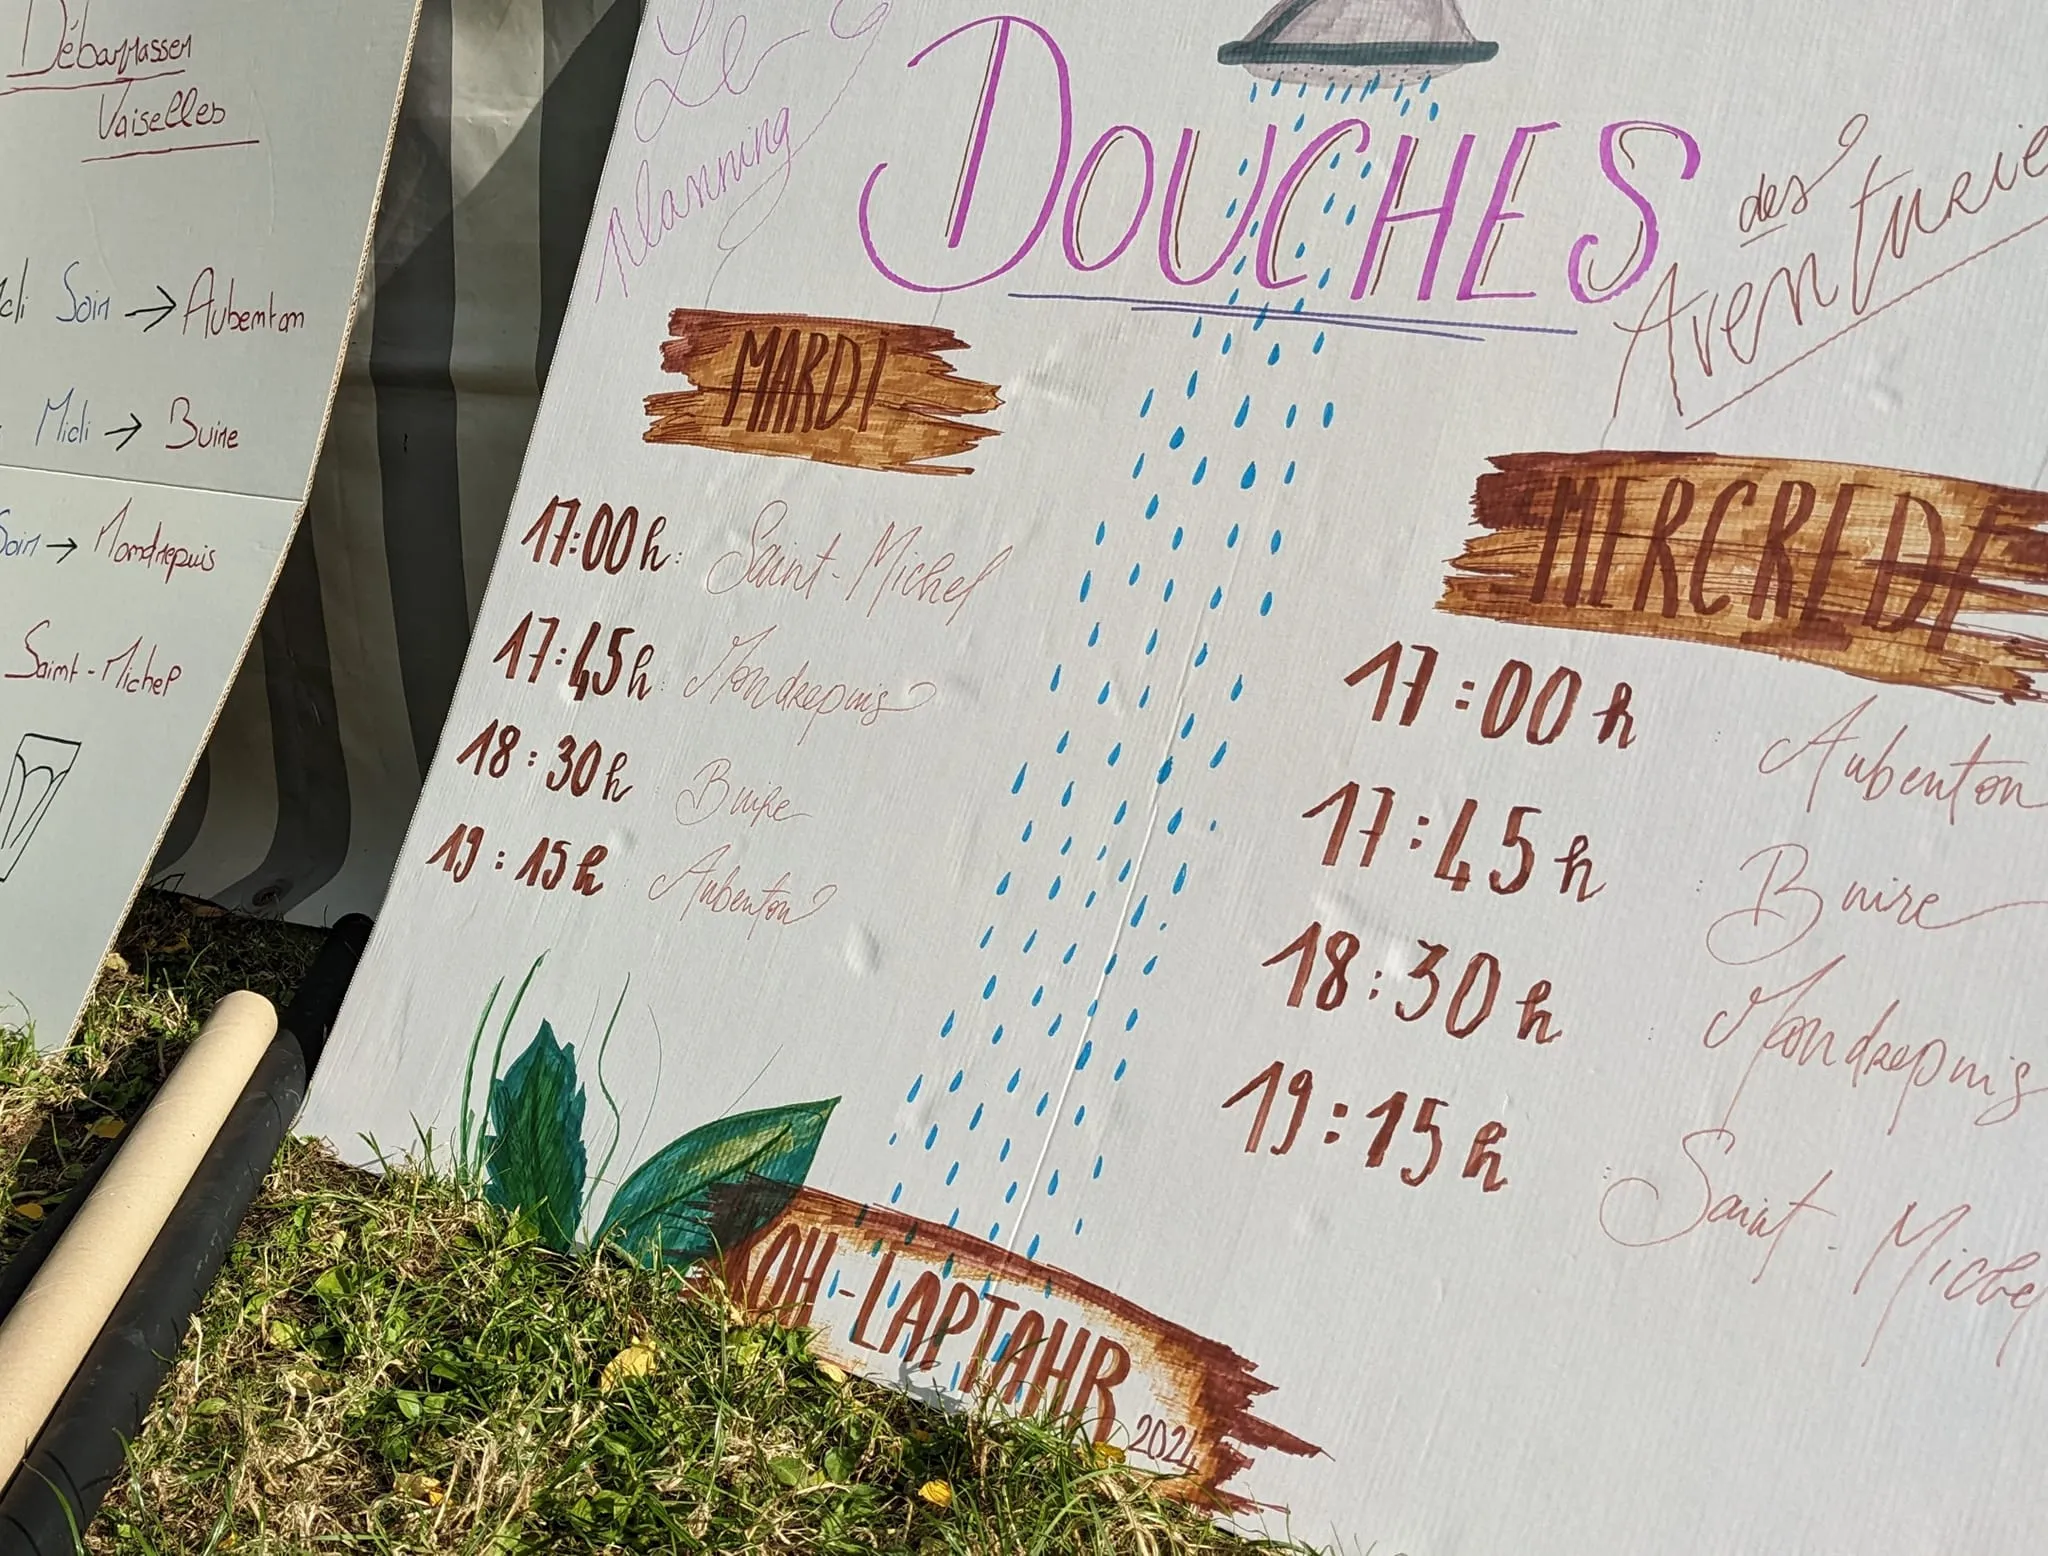 Débarrasser
Vaiselles
Soir → Aubenton
Midi → Buire
Soir → Mondrepuis
Saint-Michel
Le
planning
DOUCHES
des
MARDI
17:00h: Saint-Michel
17:45h: Mondrepuis
18:30h Buire
19:15h: Aubenton
MERCREDI
17:00h : Aubenton
17:45h : Buire
18:30h : Mondrepuis
19:15h : Saint-Miche
KOH-LAPTAHR
2024